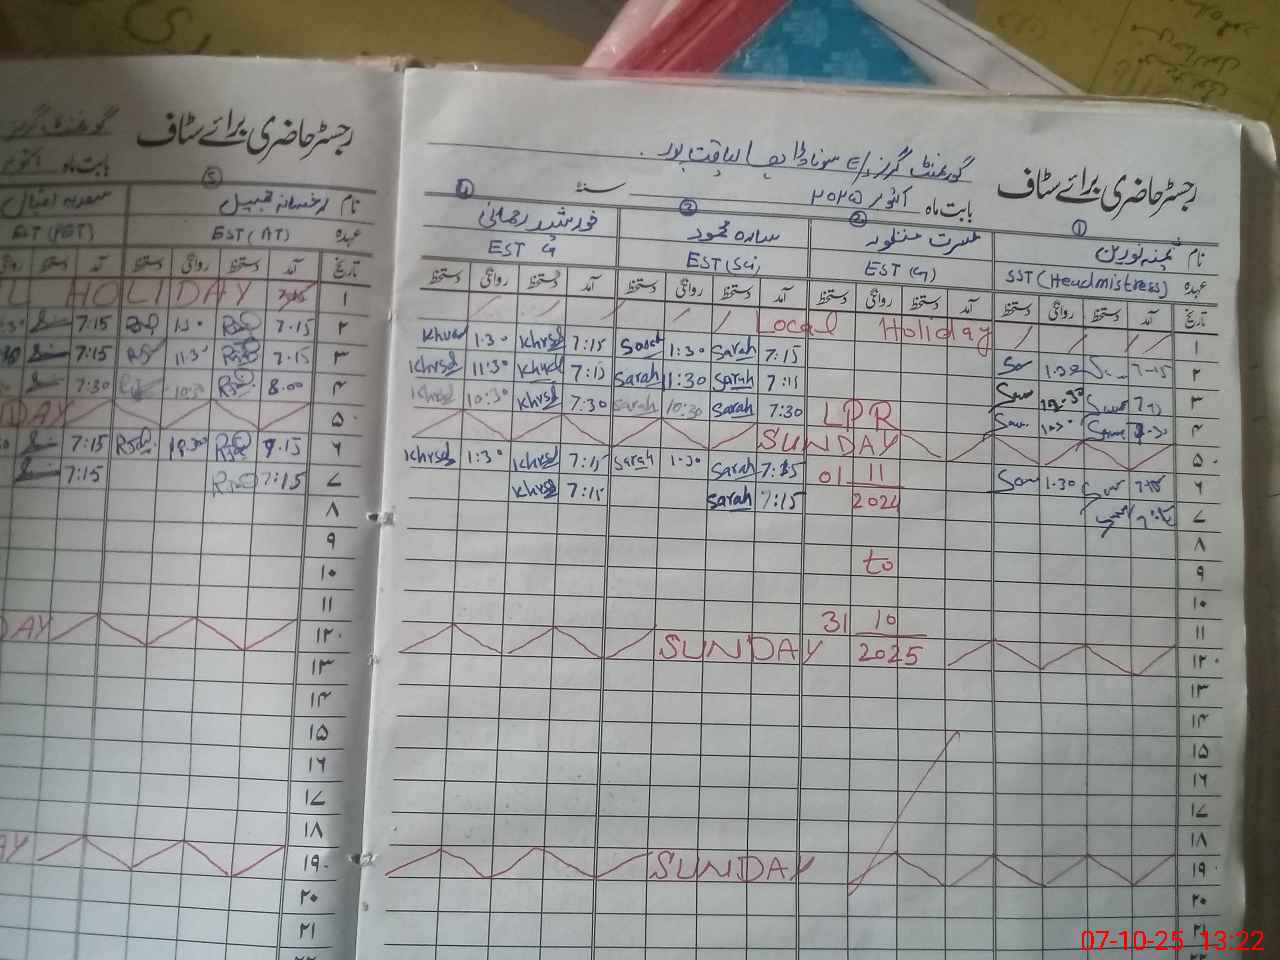 رجسٹر حاضری برائے سٹاف
گورنمنٹ گرلز
بابت ماہ اکتوبر
⑤
نام رخسانہ جمیل سعدیہ اقبال
عہدہ EST (AT) EST (PET)
تاریخ آمد دستخط روانگی دستخط آمد دستخط
۱ L HOLIDAY
۲ 7.15 1.30 7:15
۳ 7.15 11.30 7:15
۴ 8.00 10:30 7:30
۵ DAY
۶ 7.15 7:15
۷ 7:15 7:15
۸
۹
۱۰
۱۱
۱۲ DAY
۱۳
۱۴
۱۵
۱۶
۱۷
۱۸
۱۹ AY
۲۰
۲۱
۲۲
رجسٹر حاضری برائے سٹاف
گورنمنٹ گرلز لیاقت پور
بابت ماہ اکتوبر ۲۰۲۵ سنہ
① ② ③ ④
نام ثمینہ نورین مسرت منظور سارہ محمود خورشید رحمانی
عہدہ SST (Headmistress) EST (G) EST (Sci) EST G
تاریخ آمد دستخط روانگی دستخط آمد دستخط روانگی دستخط آمد دستخط روانگی دستخط آمد دستخط روانگی دستخط
۱ Local Holiday
۲ 7-15 7:15 Sarah 1:30 Sarah 7:15 Khrsd 1:30 Khrsd
۳ 7:15 Sarah 11:30 Sarah 7:15 Khrsd 11:30 Khrsd
۴ LPR 7:30 Sarah 10:30 Sarah 7:30 Khrsd 10:30 Khrsd
۵ SUNDAY
۶ 1.30 01 11 7:15 Sarah 1.30 Sarah 7:15 Khrsd 1:30 Khrsd
۷ 2024 7:15 Sarah 7:15 Khrsd
۸
۹ to
۱۰
۱۱ 31 10
۱۲ 2025 SUNDAY
۱۳
۱۴
۱۵
۱۶
۱۷
۱۸
۱۹ SUNDAY
۲۰
۲۱
07-10-25 13:22